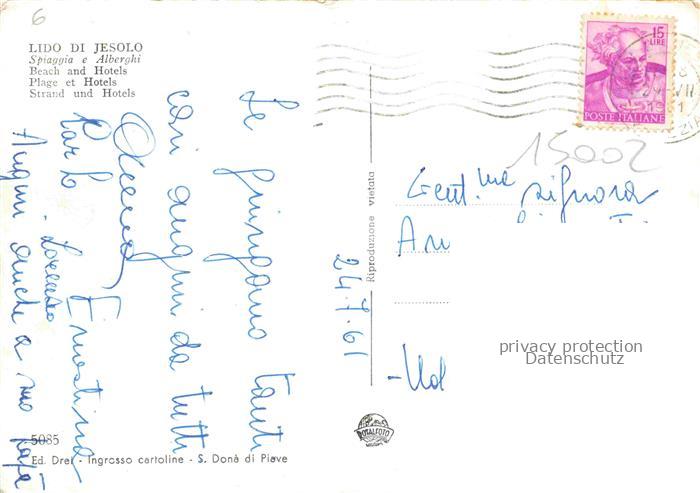 6
LIDO DI JESOLO
Spiaggia e Alberghi
Beach and Hotels
Plage et Hotels
Strand und Hotels
15
LIRE
POSTE ITALIANE
15002
Le giungano tanti
cari auguri da tutti
Ernestina
Carlo Lorenzo
Auguri anche a suo papà
24.7.61
Riproduzione vietata
Gent.ma Signora
An
Ud
privacy protection
Datenschutz
5085
Ed. Drei - Ingrosso cartoline - S. Donà di Piave